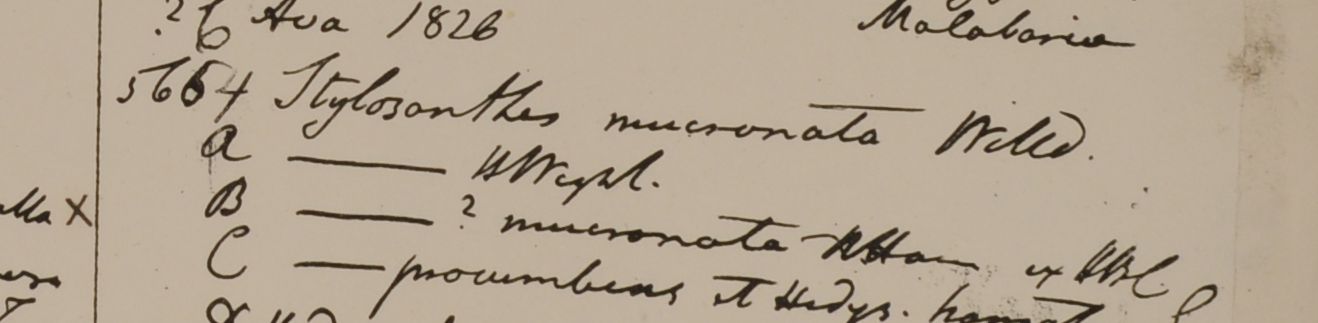 ? C Ava 1826 Malabaria
5664 Stylosanthes mucronata Willd.
A — HWight.
B — ? mucronata HHam ex HBC
X
C — procumbens et Hedys.